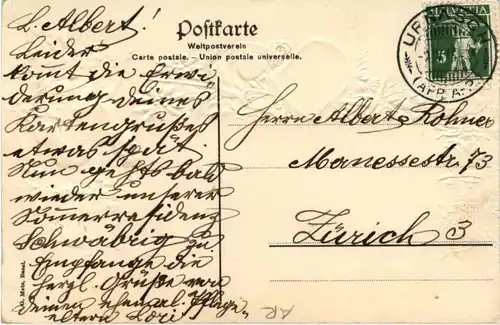 L. Albert!
Leider
komt die Erwi-
derung deines
Kartengrußes
etwas spät.
Nun gehts bald
wieder unserer
Somerresidenz
Schwäbrig zu
Empfange die
herzl. Grüße von
deinen ehemal. Pflege-
eltern Lori
Postkarte
Weltpostverein
Carte postale. – Union postale universelle.
HELVETIA
5
URNÄSCH
(APP. A.
Herrn Albert Rohner
Manessestr. 73
Zürich 3
G. Metz, Basel.
AR